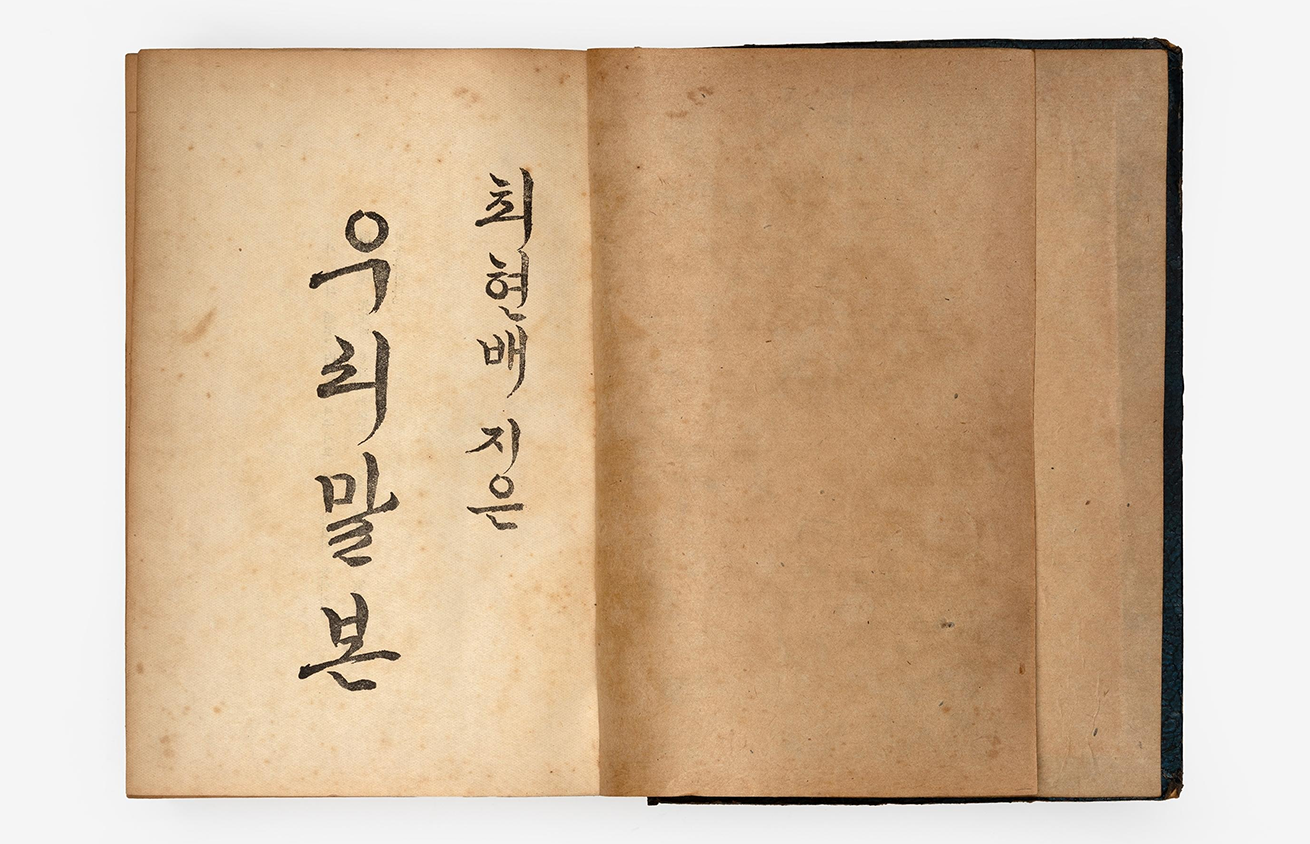 최현배 지은
우리말본